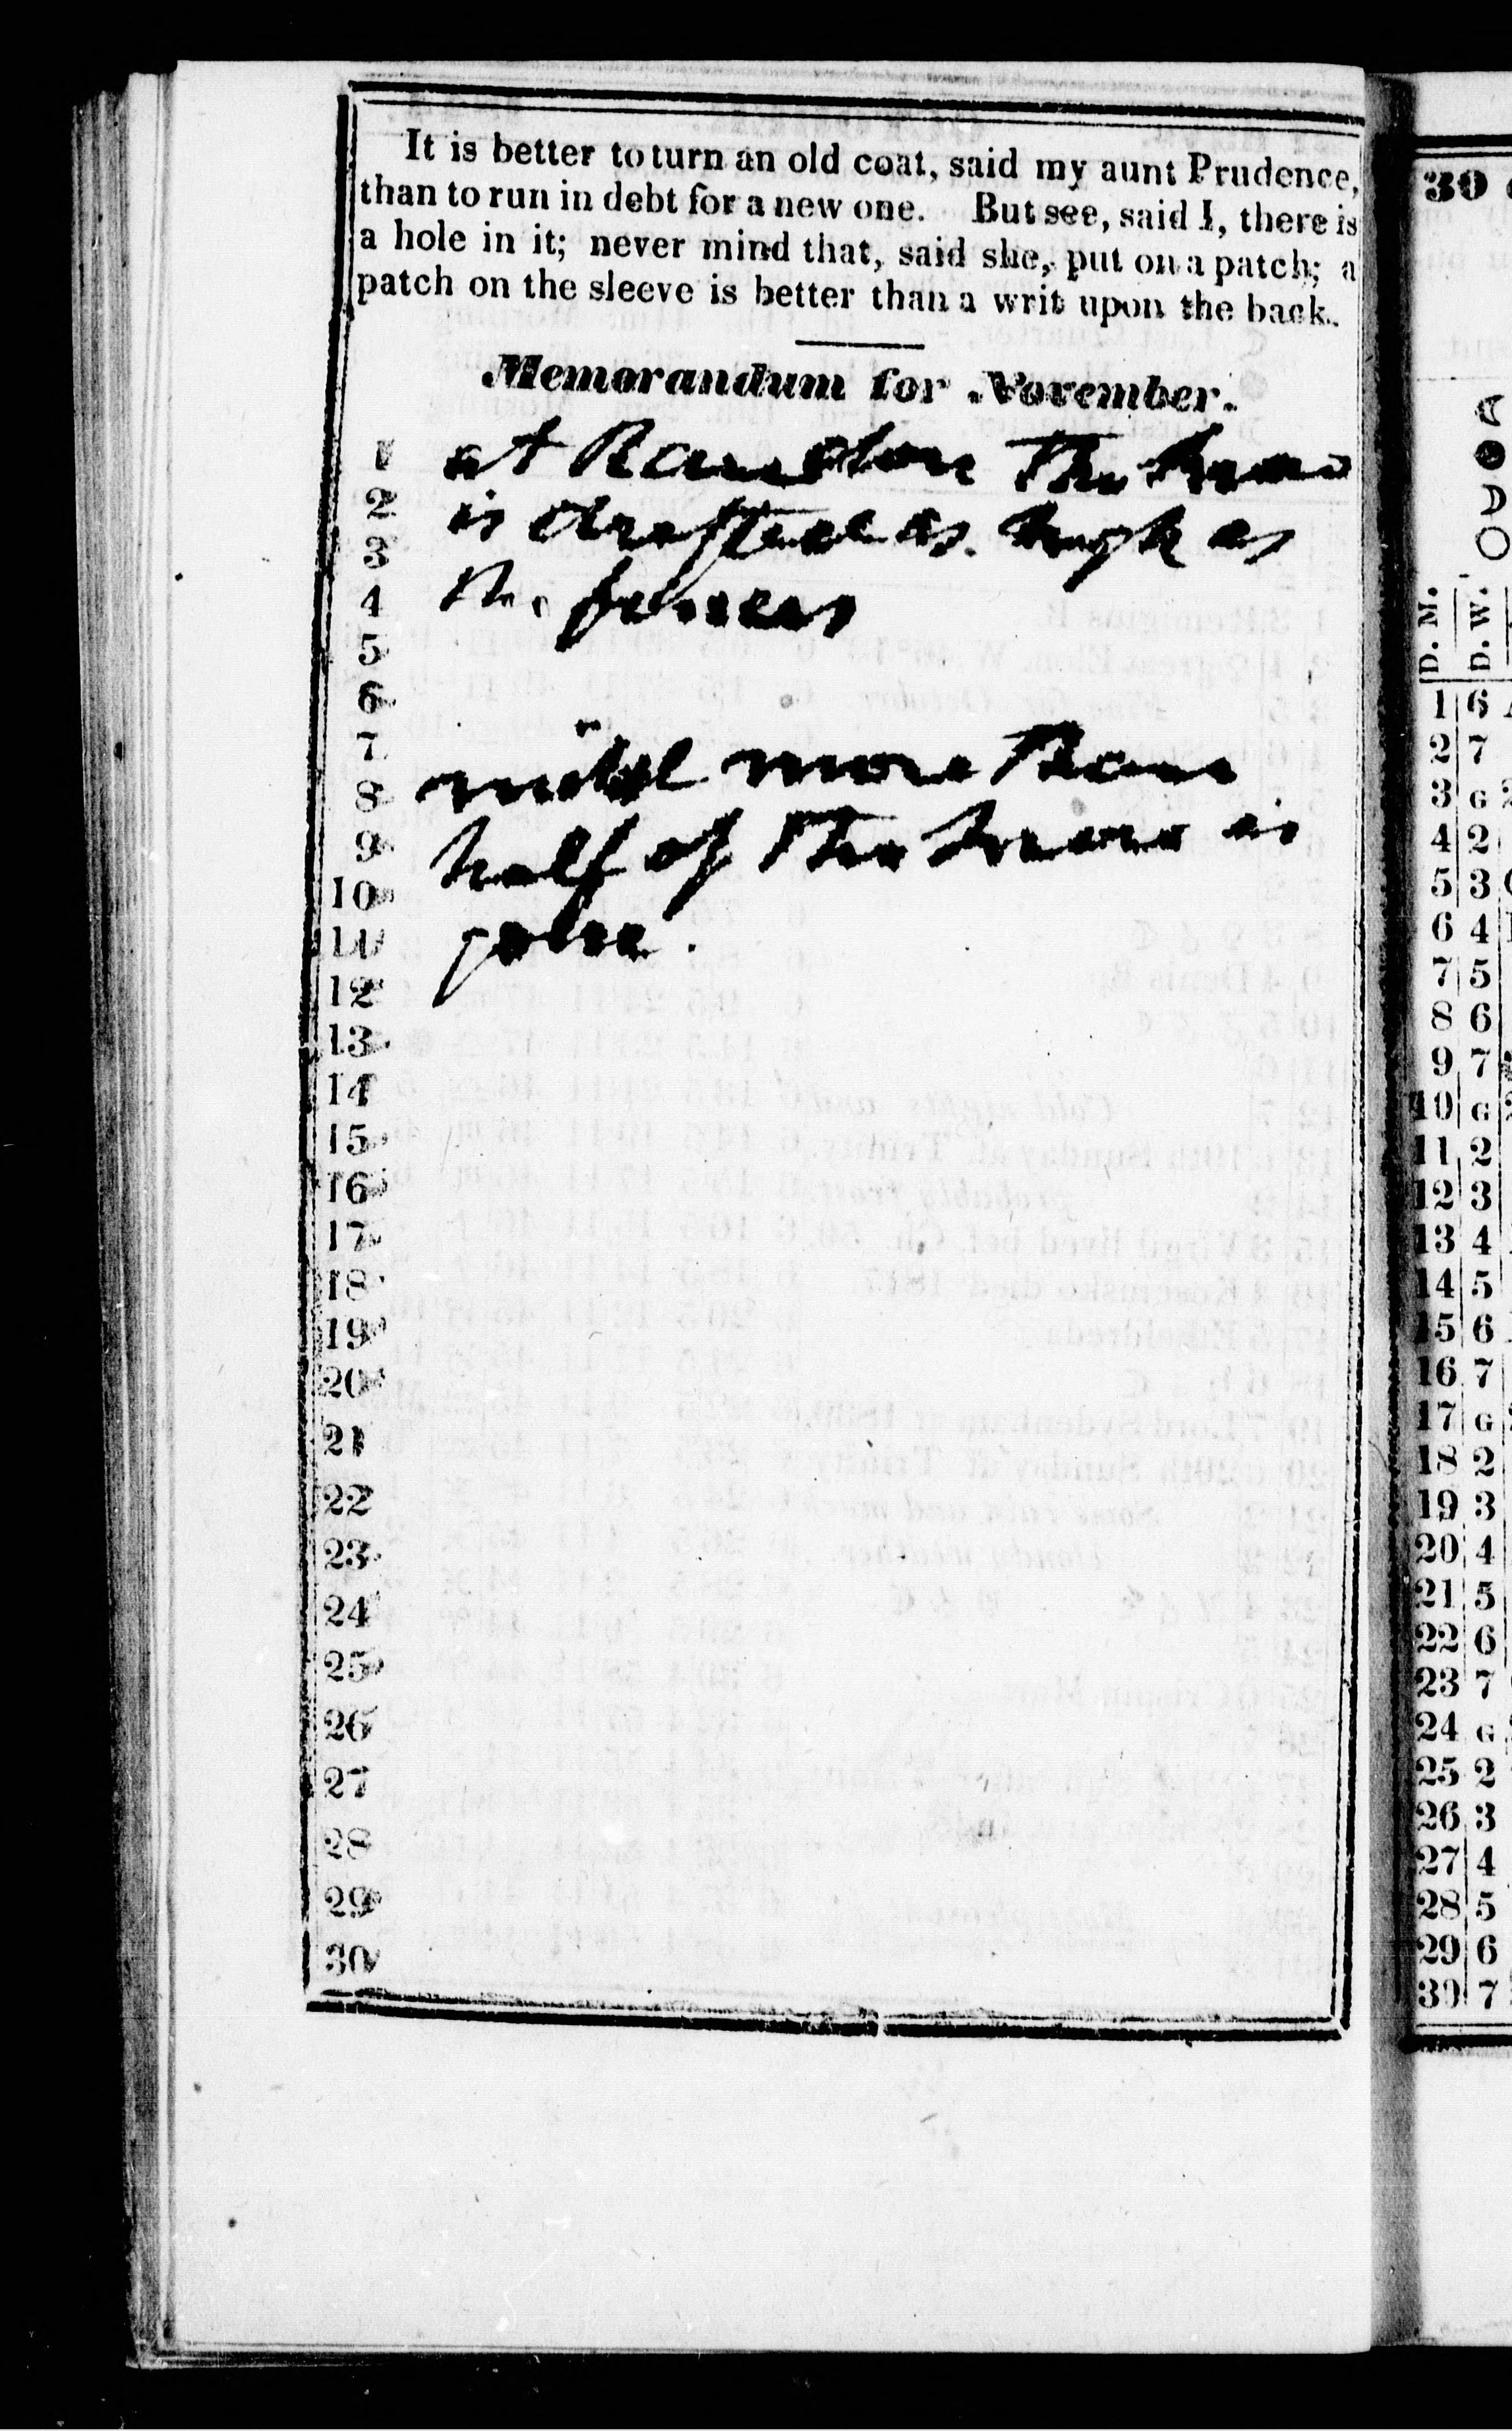 It is better to turn an old coat, said my aunt Prudence,
than to run in debt for a new one. But see, said I, there is
a hole in it; never mind that, said she, put on a patch; a
patch on the sleeve is better than a writ upon the back.
Memorandum for November.
1 at The
2 is as high as
3
4 the fences
5
6
7
8 mild more than
9 half of the is
10
11
12
13
14
15
16
17
18
19
20
21
22
23
24
25
26
27
28
29
30
30
D. M. D. W.
1 6
2 7
3 G
4 2
5 3
6 4
7 5
8 6
9 7
10 G
11 2
12 3
13 4
14 5
15 6
16 7
17 G
18 2
19 3
20 4
21 5
22 6
23 7
24 G
25 2
26 3
27 4
28 5
29 6
30 7